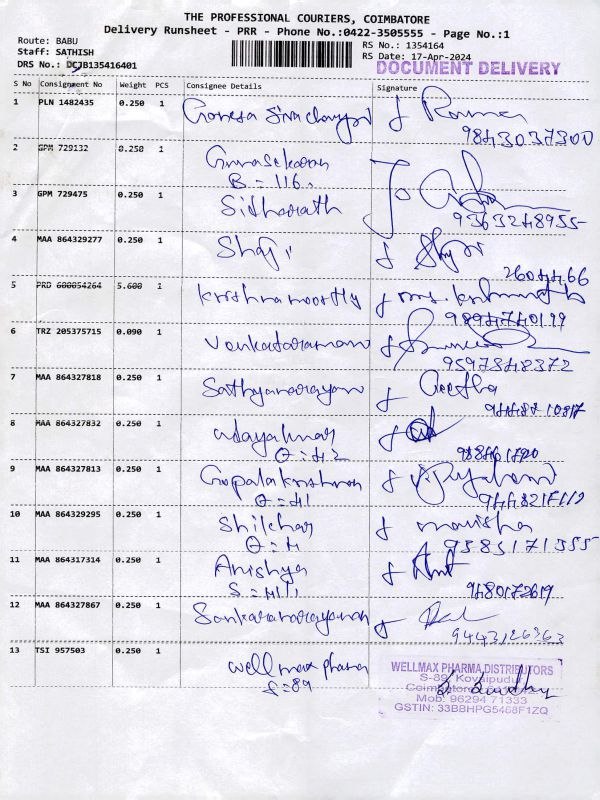 THE PROFESSIONAL COURIERS, COIMBATORE
Delivery Runsheet - PRR - Phone No.:0422-3505555 - Page No.:1
Route: BABU
RS No.: 1354164
Staff: SATHISH
RS Date: 17-Apr-2024
DRS No.: DCJB135416401
DOCUMENT DELIVERY
S No Consignment No Weight PCS Consignee Details Signature
1 PLN 1482435 0.250 1
9843037300
2 GPM 729132 0.250 1 Gunasekaran
B = 116,
3 GPM 729475 0.250 1 Sitharath
9363248955
4 MAA 864329277 0.250 1 Shaji
26044466
5 PRD 600054264 5.600 1 Krishnamoorthy
9894740199
6 TRZ 205375715 0.090 1 Venkataraman
9597848372
7 MAA 864327818 0.250 1 Sathyanarayan Geetha
8 MAA 864327832 0.250 1 udayakumar
9 MAA 864327813 0.250 1 Gopalakrishnan
10 MAA 864329295 0.250 1 Shikhar manisha
9585171355
11 MAA 864317314 0.250 1 Anishya
9480172619
12 MAA 864327867 0.250 1 Sankaranarayanan
9443126363
13 TSI 957503 0.250 1 wellmax pharma
S=89
WELLMAX PHARMA DISTRIBUTORS
S-89, Kovaipudur
Coimbatore
Mob: 96294 71333
GSTIN: 33BBHPG5468F1ZQ